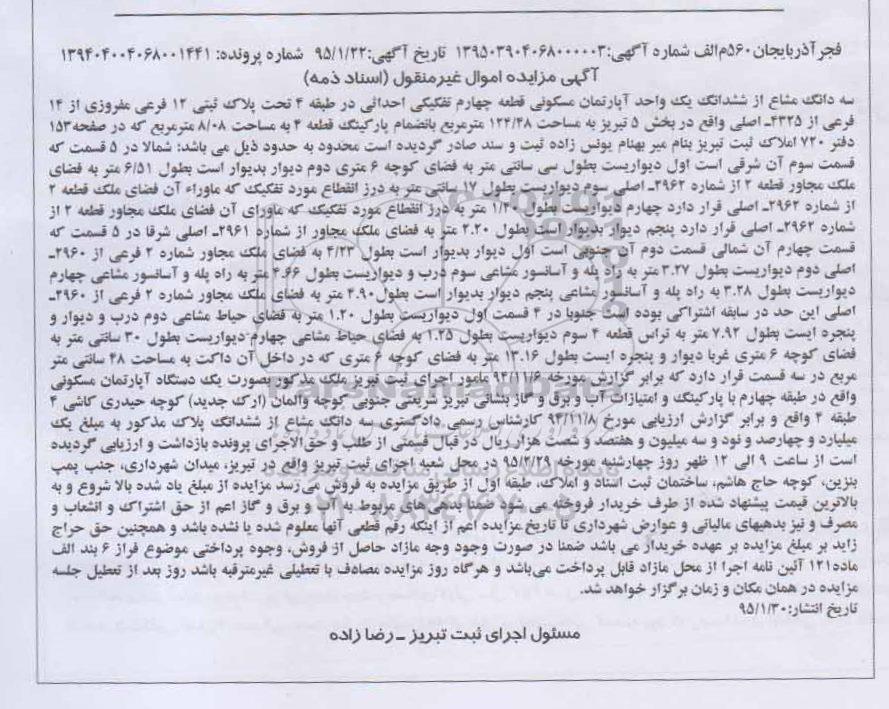 فجر آذربایجان ۵۶۰م/الف شماره آگهی:۱۳۹۵۰۳۹۰۴۰۶۸۰۰۰۰۰۳ تاریخ آگهی:۹۵/۱/۲۲ شماره پرونده: ۱۳۹۴۰۴۰۰۴۰۶۸۰۰۱۴۴۱
آگهی مزایده اموال غیرمنقول (اسناد ذمه)
سه دانگ مشاع از ششدانگ یک واحد آپارتمان مسکونی قطعه چهارم تفکیکی احداثی در طبقه ۴ تحت پلاک ثبتی ۱۲ فرعی مفروزی از ۱۴
فرعی از ۴۳۲۵ـ اصلی واقع در بخش ۵ تبریز به مساحت ۱۲۴/۴۸ مترمربع بانضمام پارکینگ قطعه ۴ به مساحت ۸/۰۸ مترمربع که در صفحه۱۵۳
دفتر ۷۲۰ املاک ثبت تبریز بنام میر بهنام یونس زاده ثبت و سند صادر گردیده است محدود به حدود ذیل می باشد: شمالا در ۵ قسمت که
قسمت سوم آن شرقی است اول دیواریست بطول سی سانتی متر به فضای کوچه ۶ متری دوم دیوار بدیوار است بطول ۶/۵۱ متر به فضای
ملک مجاور قطعه ۲ از شماره ۲۹۶۲ـ اصلی سوم دیواریست بطول ۱۷ سانتی متر به درز انقطاع مورد تفکیک که ماوراء آن فضای ملک قطعه ۲
از شماره ۲۹۶۲ـ اصلی قرار دارد چهارم دیواریست بطول ۱/۲۰ متر به درز انقطاع مورد تفکیک که ماورای آن فضای ملک مجاور قطعه ۲ از
شماره ۲۹۶۲ـ اصلی قرار دارد پنجم دیوار بدیوار است بطول ۲.۲۰ متر به فضای ملک مجاور از شماره ۲۹۶۱ـ اصلی شرقا در ۵ قسمت که
قسمت چهارم آن شمالی قسمت دوم آن جنوبی است اول دیوار بدیوار است بطول ۴/۲۳ به فضای ملک مجاور شماره ۲ فرعی از ۲۹۶۰ـ
اصلی دوم دیواریست بطول ۳.۲۷ متر به راه پله و آسانسور مشاعی سوم درب و دیواریست بطول ۴.۶۶ متر به راه پله و آسانسور مشاعی چهارم
دیواریست بطول ۳.۲۸ به راه پله و آسانسور مشاعی پنجم دیوار بدیوار است بطول۴.۹۰ متر به فضای ملک مجاور شماره ۲ فرعی از ۲۹۶۰ـ
اصلی این حد در سابقه اشتراکی بوده است جنوبا در ۴ قسمت اول دیواریست بطول ۱.۲۰ متر به فضای حیاط مشاعی دوم درب و دیوار و
پنجره ایست بطول ۷.۹۲ متر به تراس قطعه ۴ سوم دیواریست بطول ۱.۲۵ به فضای حیاط مشاعی چهارم دیواریست بطول ۳۰ سانتی متر به
فضای کوچه ۶ متری غربا دیوار و پنجره ایست بطول ۱۳.۱۶ متر به فضای کوچه ۶ متری که در داخل آن داکت به مساحت ۴۸ سانتی متر
مربع در سه قسمت قرار دارد که برابر گزارش مورخه ۹۴/۱۱/۶ مامور اجرای ثبت تبریز ملک مذکور بصورت یک دستگاه آپارتمان مسکونی
واقع در طبقه چهارم با پارکینگ و امتیازات آب و برق و گاز بنشانی تبریز شریعتی جنوبی کوچه والمان (ارک جدید) کوچه حیدری کاشی ۴
طبقه ۴ واقع و برابر گزارش ارزیابی مورخ ۹۴/۱۱/۸ کارشناس رسمی دادگستری سه دانگ مشاع از ششدانگ پلاک مذکور به مبلغ یک
میلیارد و چهارصد و نود و سه میلیون و هفتصد و شصت هزار ریال در قبال قسمتی از طلب و حق الاجرای پرونده بازداشت و ارزیابی گردیده
است از ساعت ۹ الی ۱۲ ظهر روز چهارشنبه مورخه ۹۵/۲/۲۹ در محل شعبه اجرای ثبت تبریز واقع در تبریز، میدان شهرداری، جنب پمپ
بنزین، کوچه حاج هاشم، ساختمان ثبت اسناد و املاک، طبقه اول از طریق مزایده به فروش می رسد مزایده از مبلغ یاد شده بالا شروع و به
بالاترین قیمت پیشنهاد شده از طرف خریدار فروخته می شود ضمنا بدهی های مربوط به آب و برق و گاز اعم از حق اشتراک و انشعاب و
مصرف و نیز بدهیهای مالیاتی و عوارض شهرداری تا تاریخ مزایده اعم از اینکه رقم قطعی آنها معلوم شده یا نشده باشد و همچنین حق حراج
زاید بر مبلغ مزایده بر عهده خریدار می باشد ضمنا در صورت وجود وجه مازاد حاصل از فروش، وجوه پرداختی موضوع فراز ۶ بند الف
ماده۱۲۱ آئین نامه اجرا از محل مازاد قابل پرداخت می‌باشد و هرگاه روز مزایده مصادف با تعطیلی غیرمترقبه باشد روز بعد از تعطیل جلسه
مزایده در همان مکان و زمان برگزار خواهد شد.
تاریخ انتشار:۹۵/۱/۳۰
مسئول اجرای ثبت تبریز ـ رضا زاده